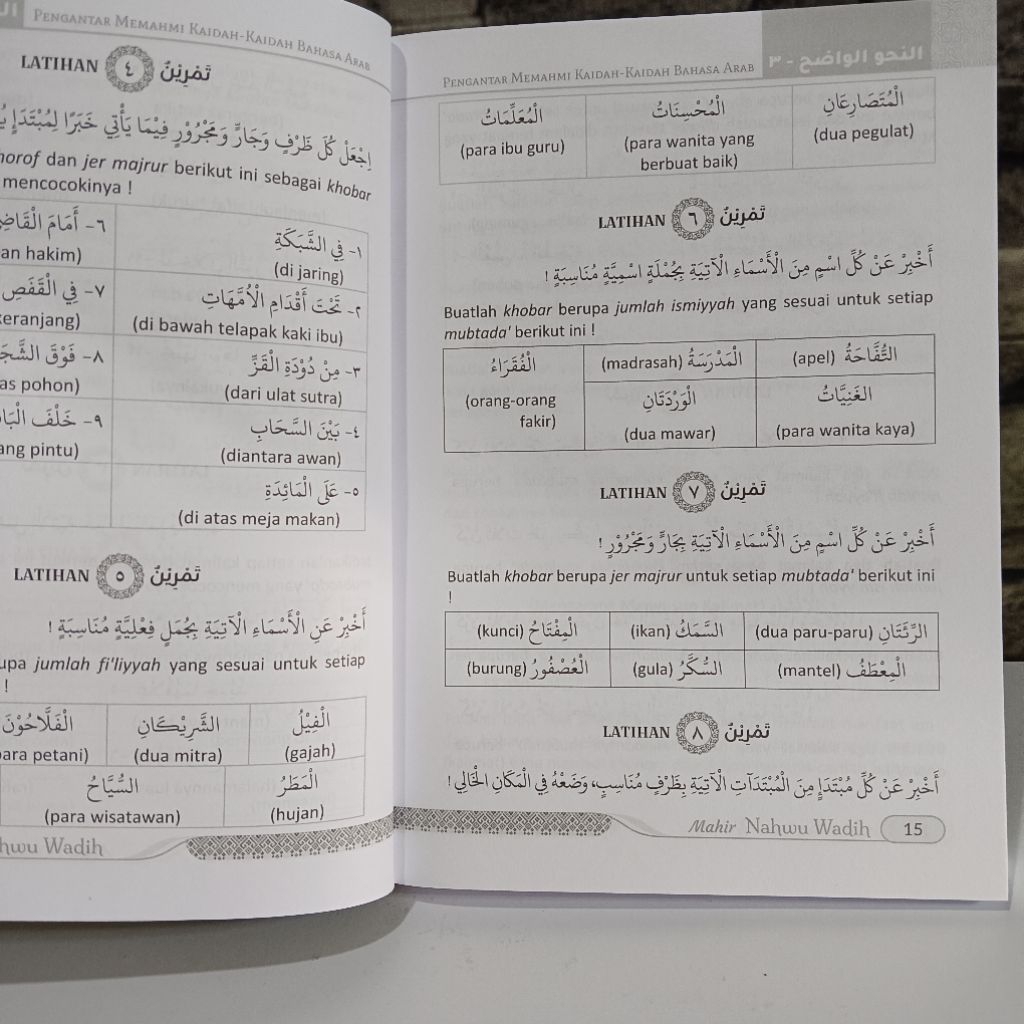 PENGANTAR MEMAHMI KAIDAH-KAIDAH BAHASA ARAB
LATIHAN ٤ تَمْرِيْنٌ
اِجْعَلْ كُلَّ ظَرْفٍ وَجَارٍّ وَمَجْرُوْرٍ فِيْمَا يَأْتِي خَبَرًا لِمُبْتَدَإٍ
horof dan jer majrur berikut ini sebagai khobar
mencocokinya !
١- فِي الشَّبَكَةِ
(di jaring)
٦- أَمَامَ الْقَاضِ
an hakim)
٢- تَحْتَ أَقْدَامِ الْأُمَّهَاتِ
(di bawah telapak kaki ibu)
٧- فِي الْقَفَصِ
keranjang)
٣- مِنْ دُوْدَةِ الْقَزِّ
(dari ulat sutra)
٨- فَوْقَ الشَّجَ
as pohon)
٤- بَيْنَ السَّحَابِ
(diantara awan)
٩- خَلْفَ الْبَا
ang pintu)
٥- عَلَى الْمَائِدَةِ
(di atas meja makan)
LATIHAN ٥ تَمْرِيْنٌ
أَخْبِرْ عَنِ الْأَسْمَاءِ الْآتِيَةِ بِجُمَلٍ فِعْلِيَّةٍ مُنَاسِبَةٍ !
upa jumlah fi'liyyah yang sesuai untuk setiap
!
الْفِيْلُ الشَّرِيْكَانِ الْفَلَّاحُوْنَ
(gajah) (dua mitra) para petani)
الْمَطَرُ السُّيَّاحُ
(hujan) (para wisatawan)
hwu Wadih
PENGANTAR MEMAHMI KAIDAH-KAIDAH BAHASA ARAB
النحو الواضح - ٣
الْمُتَصَارِعَانِ الْمُحْسِنَاتُ الْمُعَلِّمَاتُ
(dua pegulat) (para wanita yang (para ibu guru)
berbuat baik)
LATIHAN ٦ تَمْرِيْنٌ
أَخْبِرْ عَنْ كُلِّ اسْمٍ مِنَ الْأَسْمَاءِ الْآتِيَةِ بِجُمْلَةٍ اسْمِيَّةٍ مُنَاسِبَةٍ !
Buatlah khobar berupa jumlah ismiyyah yang sesuai untuk setiap
mubtada' berikut ini !
التُّفَّاحَةُ (apel) الْمَدْرَسَةُ (madrasah) الْفُقَرَاءُ
(orang-orang
fakir)
الغَنِيَّاتُ الْوَرْدَتَانِ
(para wanita kaya) (dua mawar)
LATIHAN ٧ تَمْرِيْنٌ
أَخْبِرْ عَنْ كُلِّ اسْمٍ مِنَ الْأَسْمَاءِ الْآتِيَةِ بِجَارٍّ وَمَجْرُوْرٍ !
Buatlah khobar berupa jer majrur untuk setiap mubtada' berikut ini
!
الرِّئَتَانِ (dua paru-paru) السَّمَكُ (ikan) الْمِفْتَاحُ (kunci)
الْمِعْطَفُ (mantel) السُّكَّرُ (gula) الْعُصْفُورُ (burung)
LATIHAN ٨ تَمْرِيْنٌ
أَخْبِرْ عَنْ كُلِّ مُبْتَدَإٍ مِنَ الْمُبْتَدَآتِ الْآتِيَةِ بِظَرْفٍ مُنَاسِبٍ، وَضَعْهُ فِي الْمَكَانِ الْخَالِي !
Mahir Nahwu Wadih 15